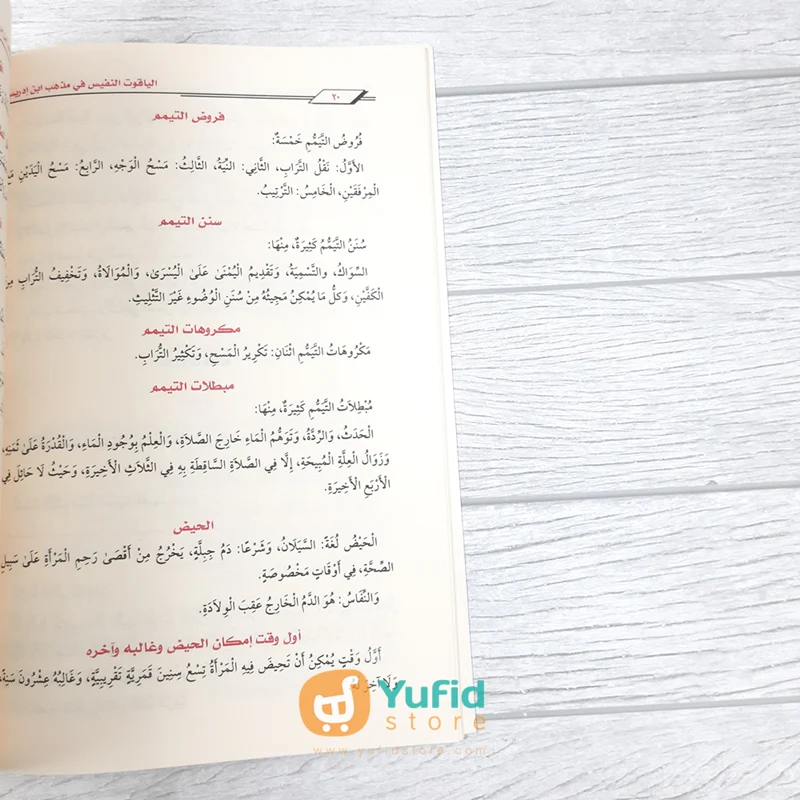 الياقوت النفيس في مذهب ابن إدريس
٢٠
فروض التيمم
فُرُوضُ التَّيَمُّمِ خَمْسَةٌ:
الأَوَّلُ: نَقْلُ التُّرَابِ، الثَّانِي: النِّيَّةُ، الثَّالِثُ: مَسْحُ الْوَجْهِ، الرَّابِعُ: مَسْحُ الْيَدَيْنِ مَعَ
الْمِرْفَقَيْنِ، الْخَامِسُ: التَّرْتِيبُ.
سنن التيمم
سُنَنُ التَّيَمُّمِ كَثِيرَةٌ، مِنْهَا:
السِّوَاكُ، والتَّسْمِيَةُ، وَتَقْدِيمُ الْيُمْنَىٰ عَلَىٰ الْيُسْرَىٰ، وَالْمُوَالَاةُ، وَتَخْفِيفُ التُّرَابِ مِنَ
الْكَفَّيْنِ، وَكلُّ مَا يُمْكِنُ مَجِيئُهُ مِنْ سُنَنِ الْوُضُوءِ غَيْرَ التَّثْلِيثِ.
مكروهات التيمم
مَكْرُوهَاتُ التَّيَمُّمِ اثْنَانِ: تَكْرِيرُ الْمَسْحِ، وَتَكْثِيرُ التُّرَابِ.
مبطلات التيمم
مُبْطِلاَتُ التَّيَمُّمِ كَثِيرَةٌ، مِنْهَا:
الْحَدَثُ، وَالرِّدَّةُ، وَتَوَهُّمُ الْمَاءِ خَارِجَ الصَّلَاةِ، وَالْعِلْمُ بِوُجُودِ الْمَاءِ، وَالْقُدْرَةُ عَلَىٰ ثَمَنِهِ،
وَزَوَالُ الْعِلَّةِ الْمُبِيحَةِ، إِلَّا فِي الصَّلَاةِ السَّاقِطَةِ بِهِ فِي الثَّلَاثِ الْأَخِيرَةِ، وَحَيْثُ لَا حَائِلَ فِي
الْأَرْبَعِ الْأَخِيرَةِ.
الحيض
الْحَيْضُ لُغَةً: السَّيَلَانُ، وَشَرْعًا: دَمُ جِبِلَّةٍ، يَخْرُجُ مِنْ أَقْصَىٰ رَحِمِ الْمَرْأَةِ عَلَىٰ سَبِيلِ
الصِّحَّةِ، فِي أَوْقَاتٍ مَخْصُوصَةٍ.
وَالنِّفَاسُ: هُوَ الدَّمُ الْخَارِجُ عَقِبَ الْوِلَادَةِ.
أول وقت إمكان الحيض وغالبه وآخره
أَوَّلُ وَقْتٍ يُمْكِنُ أَنْ تَحِيضَ فِيهِ الْمَرْأَةُ تِسْعُ سِنِينَ قَمَرِيَّةٍ تَقْرِيبِيَّةٍ، وَغَالِبُهُ عِشْرُونَ سَنَةً،
وَلَا آخِرَ
Yufid
store
www.yufidstore.com